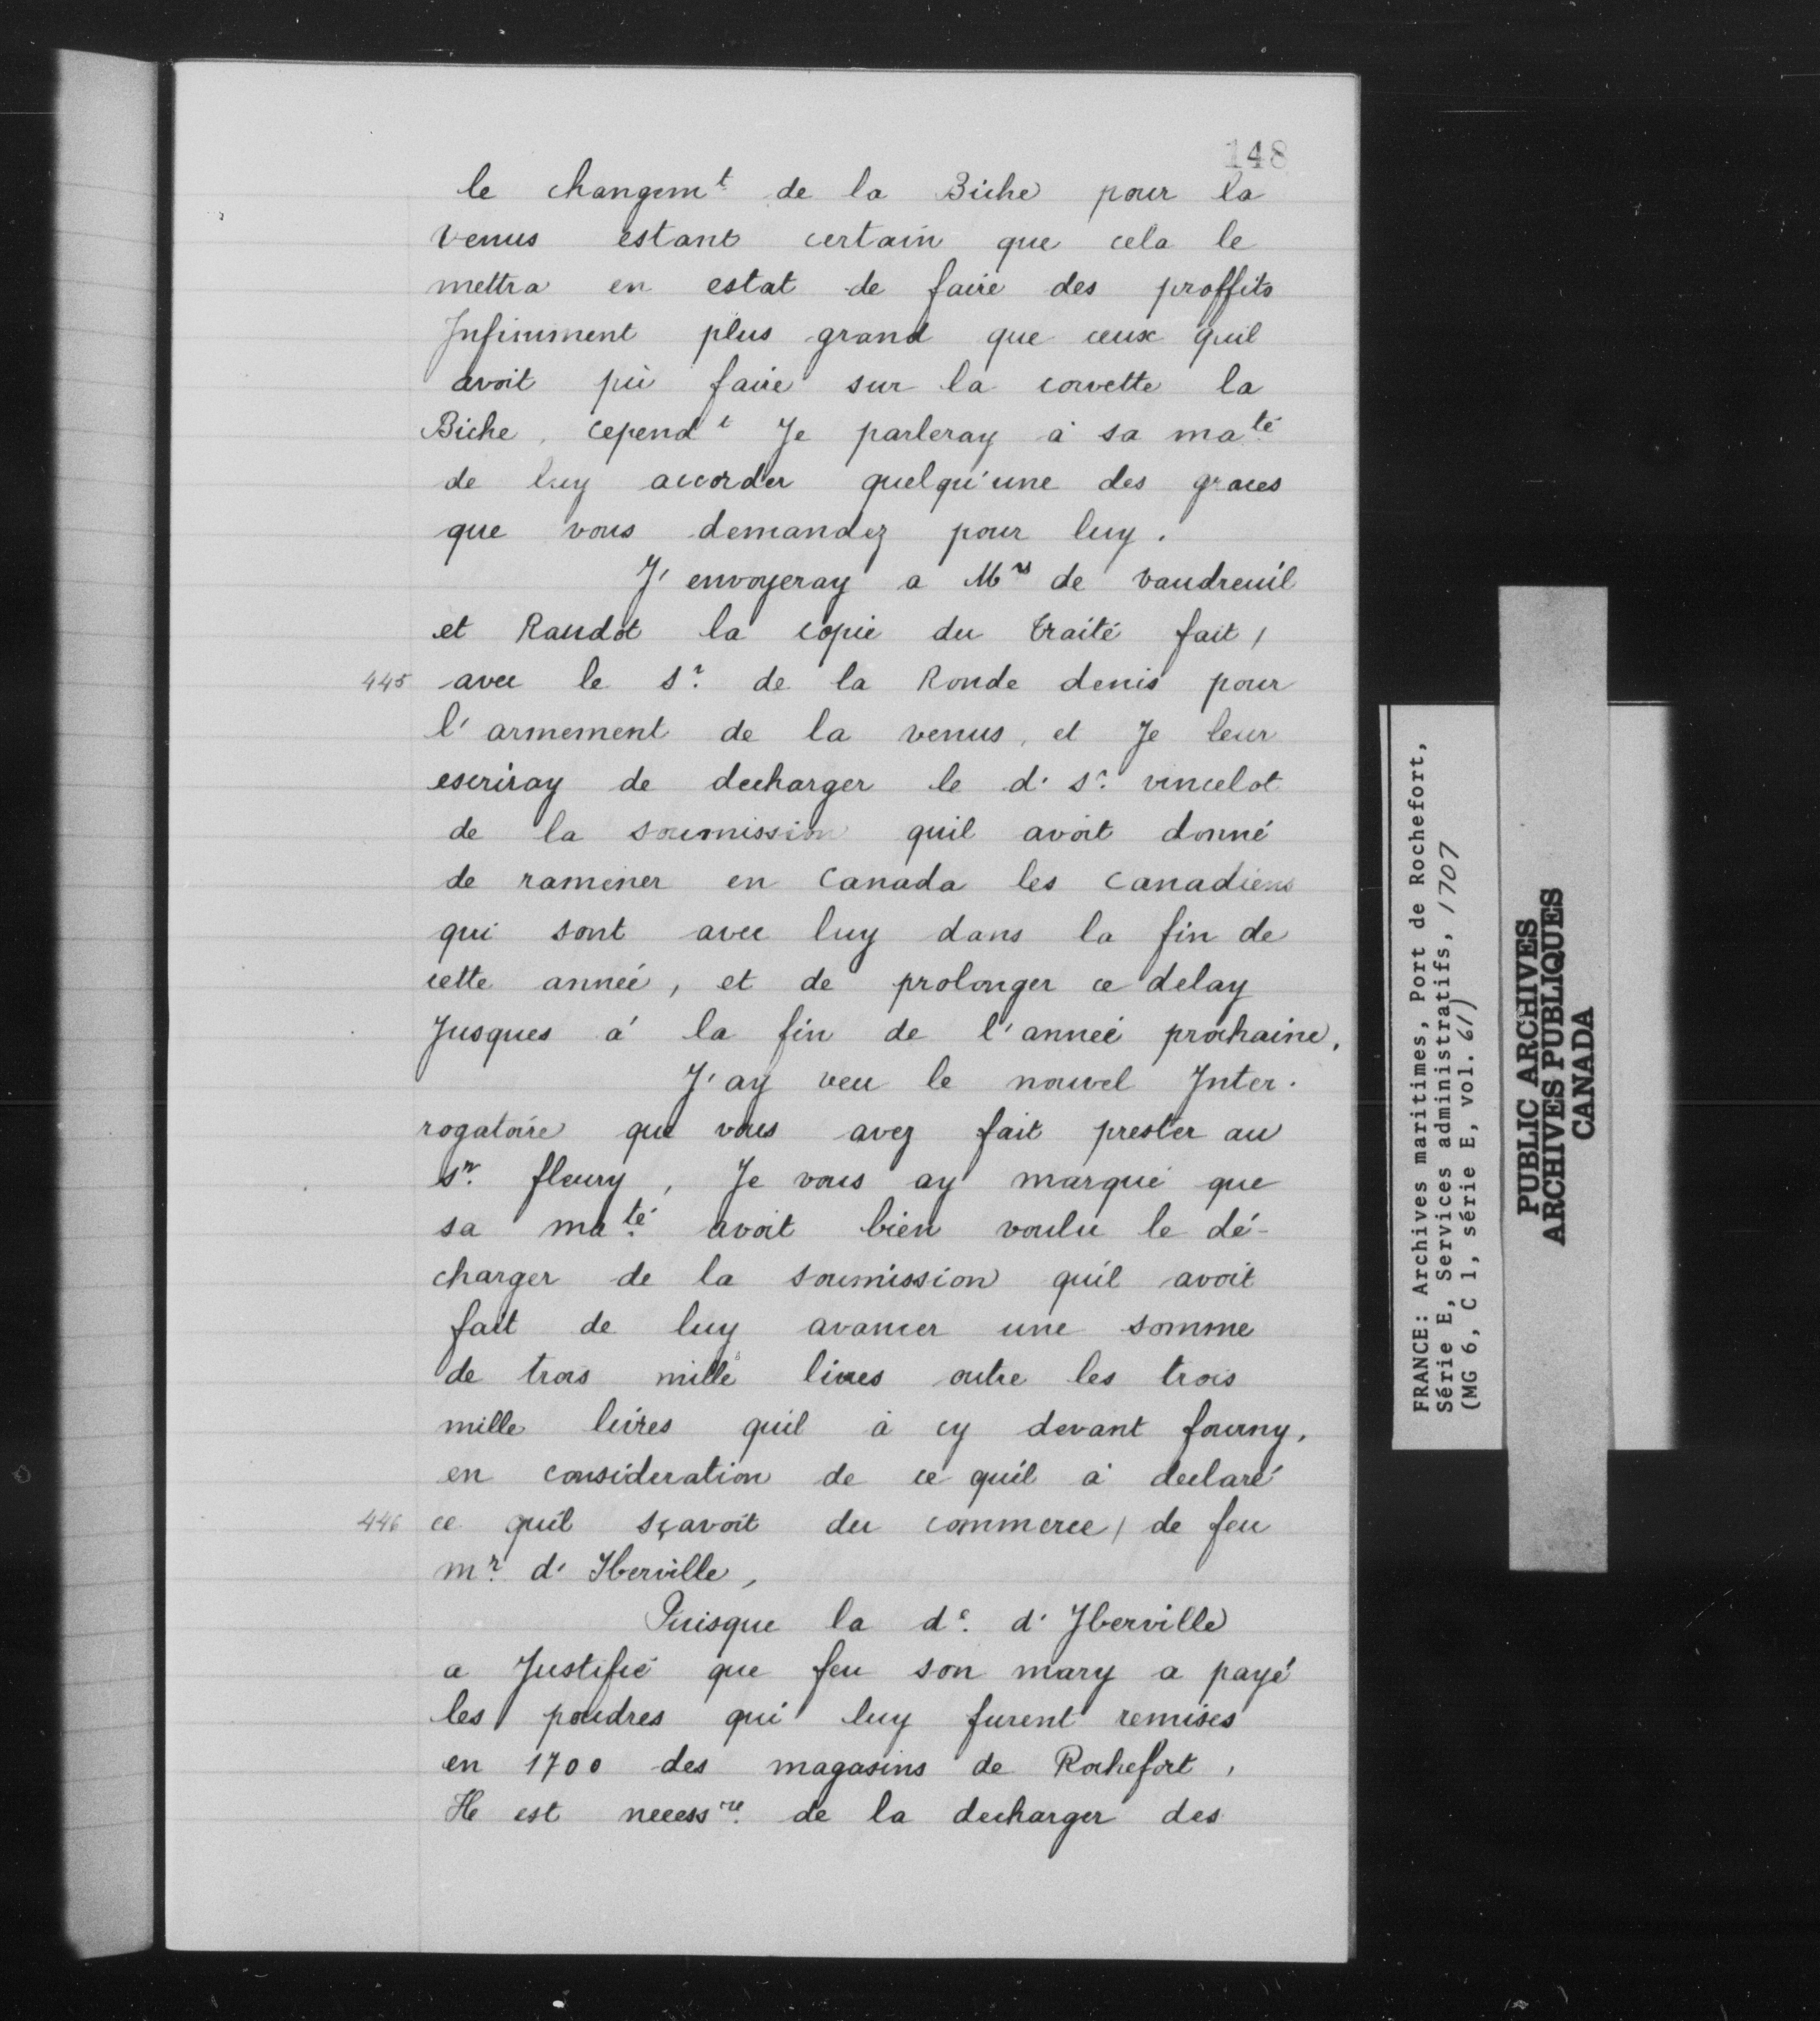 148
le changemt de la Biche pour la
Venus estant certain que cela le
mettra en estat de faire des proffits
Infiniment plus grand que ceux quil
avoit pû faire sur la corvette la
Biche, cependt Je parleray à sa maté
de luy accorder quelqu'une des graces
que vous demandez pour luy.
J'envoyeray a Mrs de Vaudreuil
et Raudot la copie du traité fait /
445 avec le Sr. de la Ronde denis pour
l'armement de la venus, et Je leur
escriray de decharger le d. Sr. vincelot
de la soumission quil avoit donné
de ramener en Canada les Canadiens
qui sont avec luy dans la fin de
cette année, et de prolonger ce delay
Jusques à la fin de l'année prochaine.
J'ay veu le nouvel Inter-
rogatoire que vous avez fait prester au
Sr. fleury, Je vous ay marqué que
sa maté avoit bien voulu le dé-
charger de la soumission quil avoit
fait de luy avancer une somme
de trois mille livres outre les trois
mille livres quil à cy devant fourny,
en consideration de ce quil à declaré
446 ce quil sçavoit du commerce / de feu
mr. d'Iberville,
Puisque la de. d'Iberville
a Justifié que feu son mary a payé
les poudres qui luy furent remises
en 1700 des magasins de Rochefort,
Il est necessre. de la decharger des
FRANCE: Archives maritimes, Port de Rochefort,
Série E, Services administratifs, 1707
(MG 6, C 1, série E, vol. 61)
PUBLIC ARCHIVES
ARCHIVES PUBLIQUES
CANADA